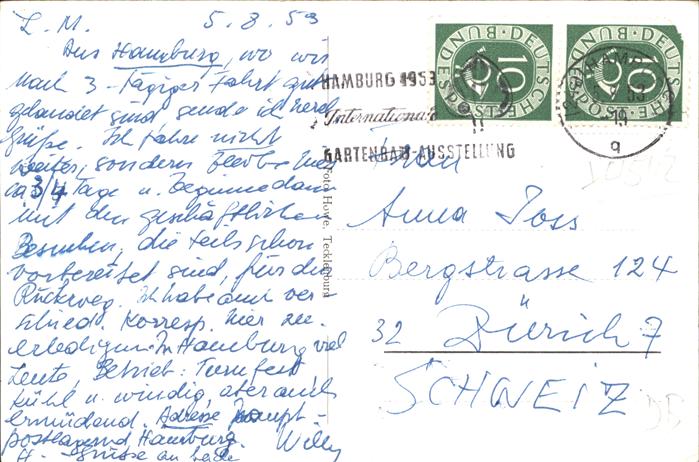 L. M. 5.8.53
Aus Hamburg, wo wir
nach 3-tägiger Fahrt gut
gelandet sind, sende ich herzl.
Grüsse. Ich fahre nicht
weiter, sondern bleibe hier
ca 3/4 Tage u. beginne dann
mit den geschäftlichen
Besuchen, die teils schon
vorbereitet sind, für die
Rückweg. Ich habe auch ver-
schied. Korresp. hier zu
erledigen. In Hamburg viel
Leute, Betrieb: Turnfest
kühl u. windig, aber auch
ermüdend. Adresse haupt-
postlagernd Hamburg.
H. Grüsse an beide
Willy
HAMBURG 1953
Internationale
GARTENBAU-AUSSTELLUNG
DEUTSCHE BUNDESPOST
10
DEUTSCHE BUNDESPOST
10
HAMBURG
53
19
q
Foto Howe, Tecklenburg
Frau
Anna Joss
Bergstrasse 124
32 Zürich 7
SCHWEIZ